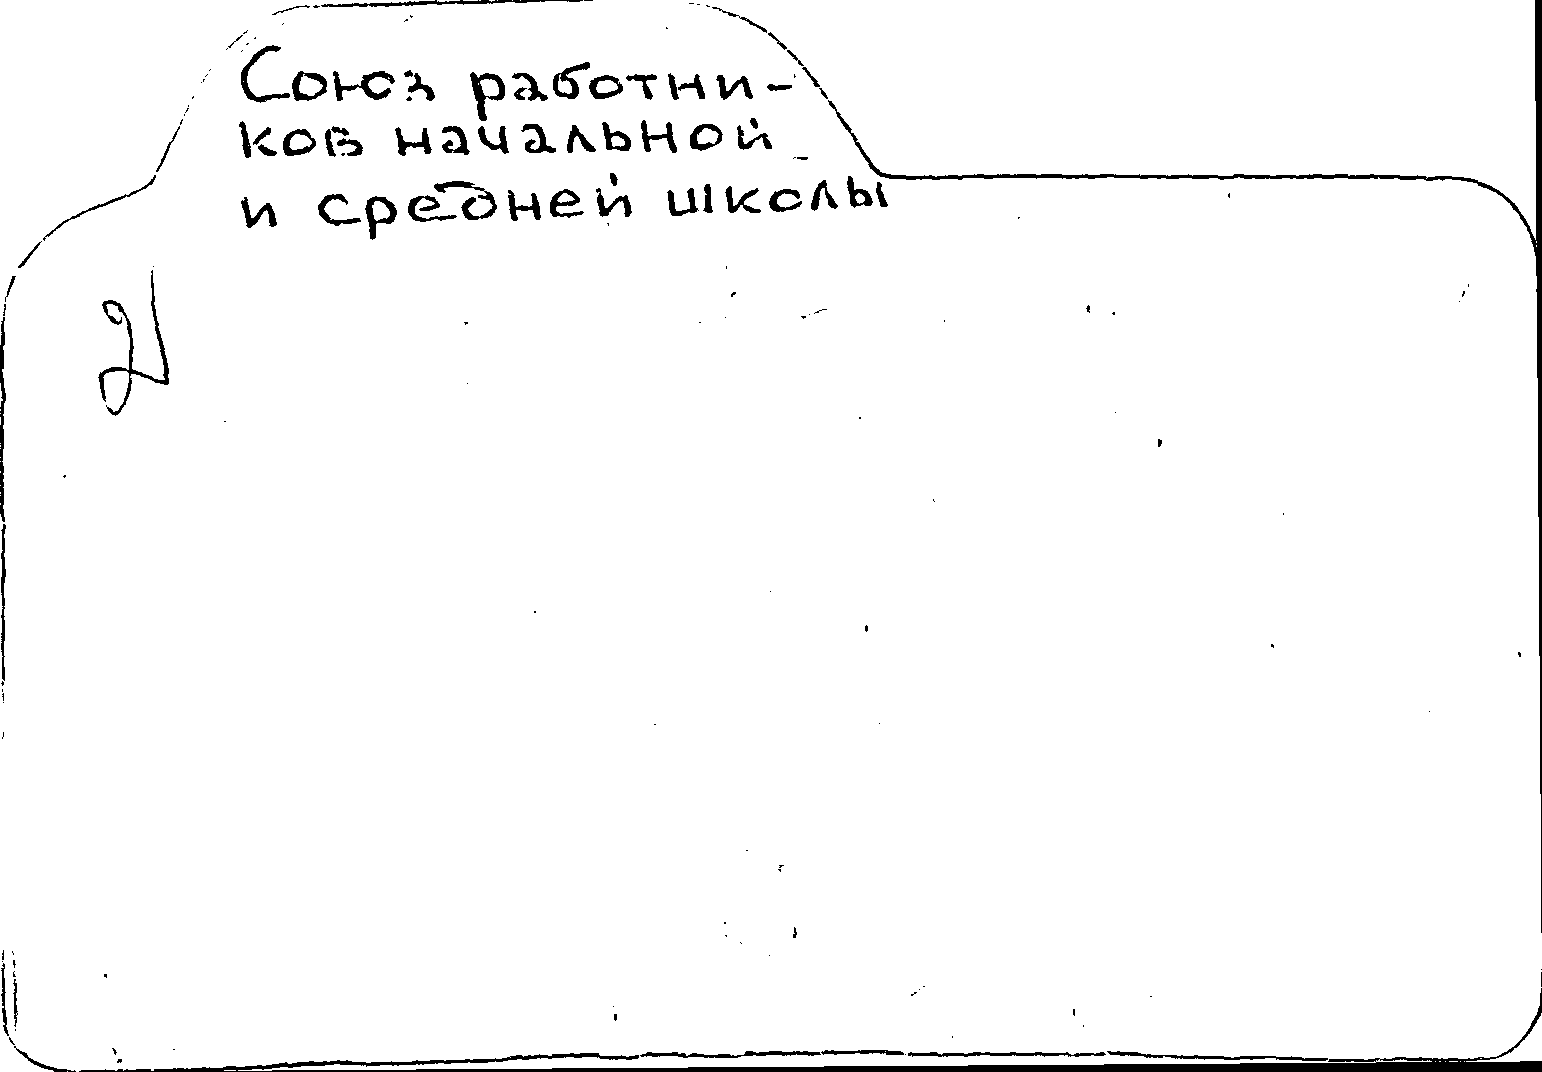 Союз работни-
ков начальной
и средней школы